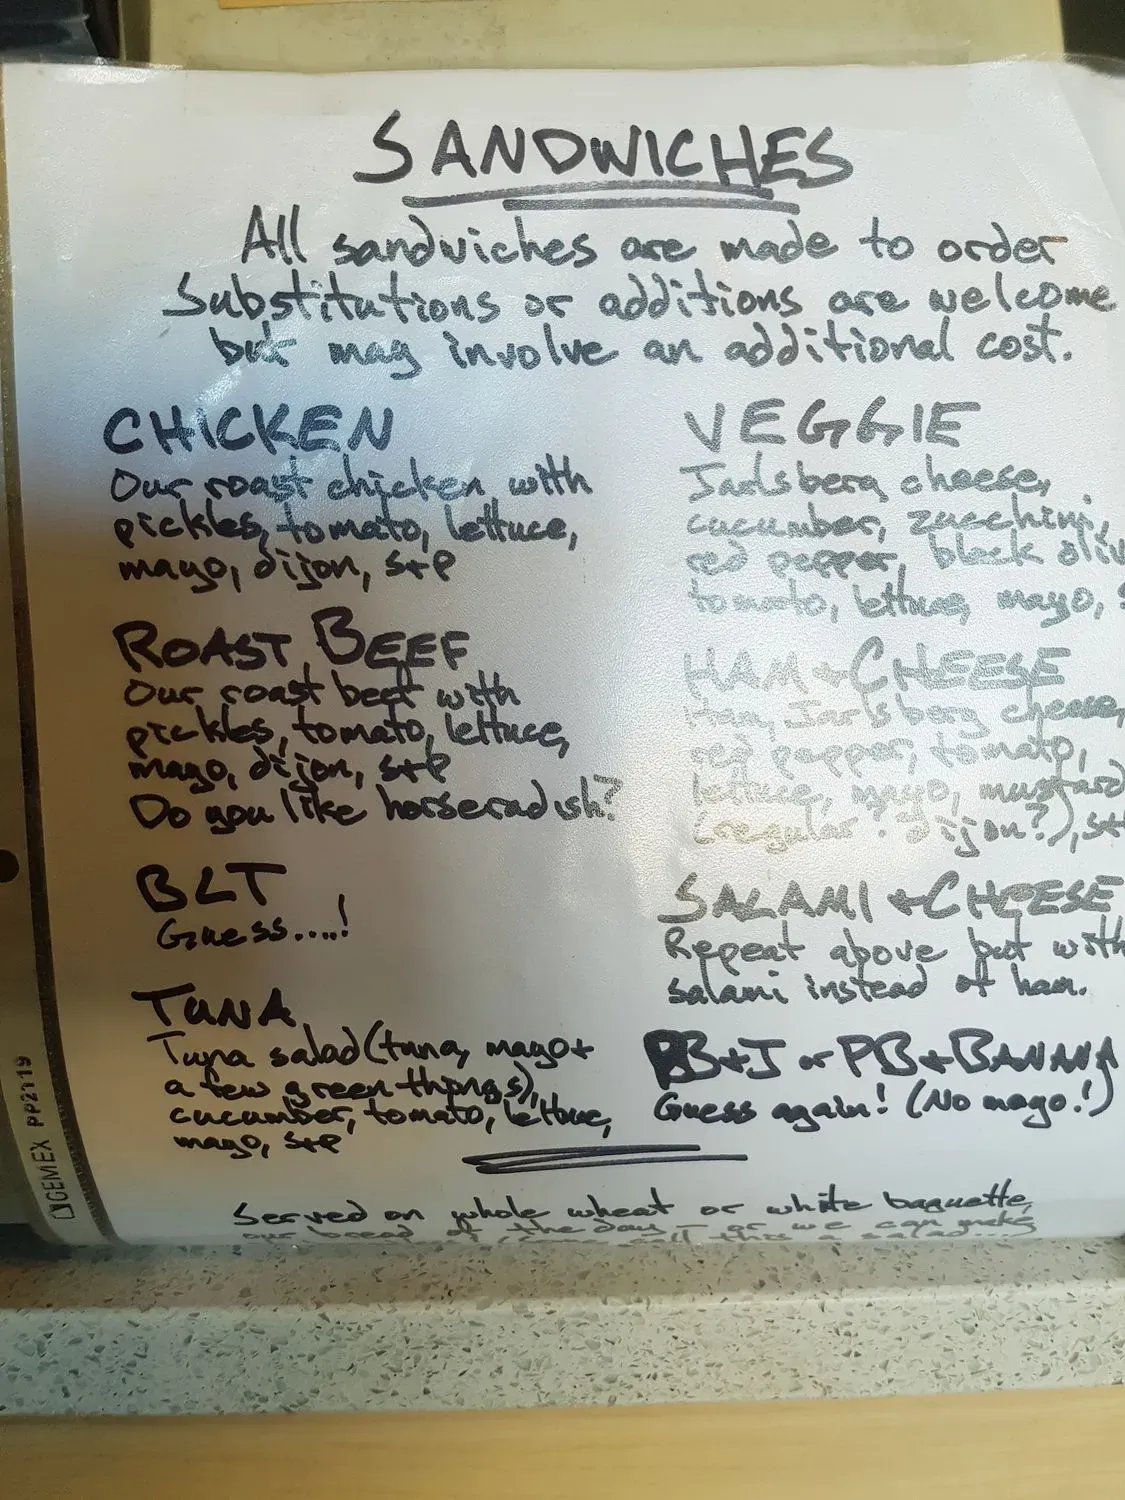 SANDWICHES
All sandwiches are made to order
Substitutions or additions are welcome
but may involve an additional cost.
CHICKEN
Our roast chicken with
pickles, tomato, lettuce,
mayo, dijon, s+p
ROAST BEEF
Our roast beef with
pickles, tomato, lettuce,
mayo, dijon, s+p
Do you like horseradish?
BLT
Guess....!
TUNA
Tuna salad (tuna, mayo +
a few green things),
cucumber, tomato, lettuce,
mayo, s+p
VEGGIE
Jarlsberg cheese,
cucumber, zucchini,
red pepper, black oliv
tomato, lettuce, mayo, s
HAM + CHEESE
Ham, Jarlsberg cheese,
red pepper, tomato,
lettuce, mayo, mustard
(regular? dijon?), s+
SALAMI + CHEESE
Repeat above but with
salami instead of ham.
PB+J or PB+BANANA
Guess again! (No mayo!)
Served on whole wheat or white baguette,
our bread of the day - or we can make
call this a salad...)
GEMEX PP2119